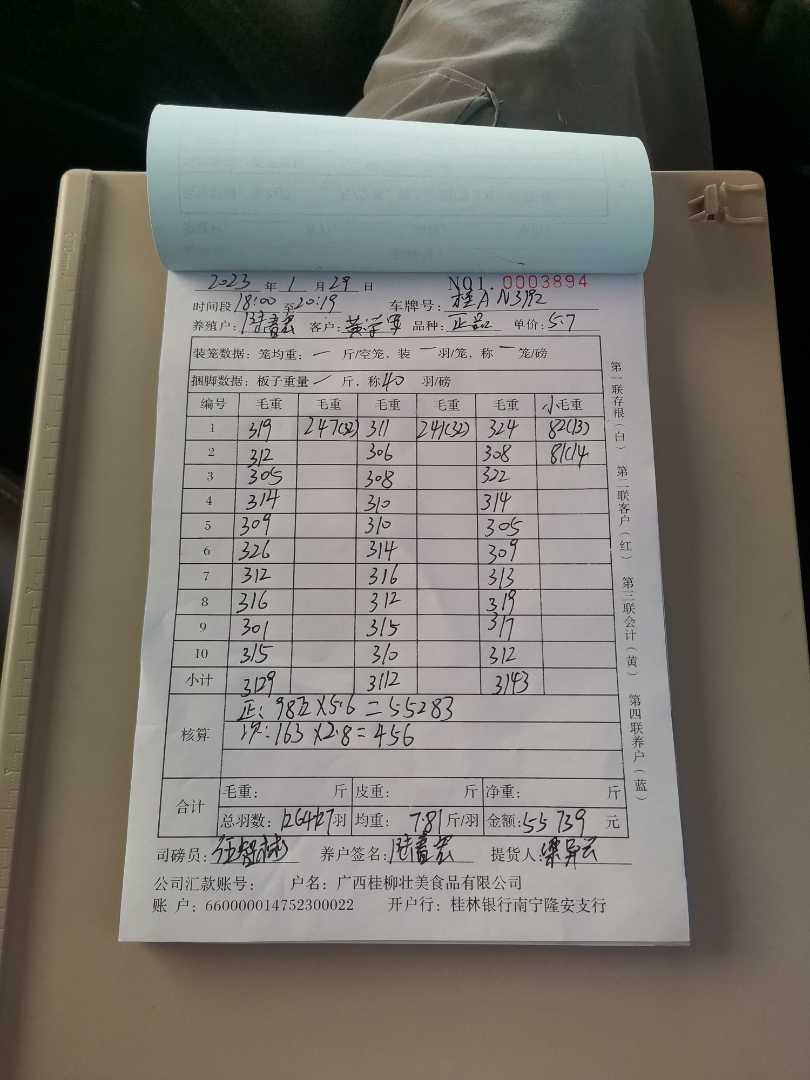 2023 年 1 月 29 日 NO1. 0003894
时间段 18:00 至 20:19 车牌号: 桂A N3192
养殖户: 客户: 品种: 正品 单价: 5.7
装笼数据: 笼均重: 一 斤/空笼, 装 一 羽/笼, 称 一 笼/磅
捆脚数据: 板子重量 一 斤, 称 40 羽/磅
编号 毛重 毛重 毛重 毛重 毛重 小毛重
1 319 247(32) 311 241(32) 324 82(13)
2 312 306 308 81(14
3 305 308 322
4 314 310 314
5 309 310 305
6 326 314 309
7 312 316 313
8 316 312 319
9 301 315 317
10 315 310 312
小计 3129 3112 3143
核算
正: ×5.6=55283
次: 163×2.8=456
合计
毛重: 斤 皮重: 斤 净重: 斤
总羽数: 羽 均重: 7.81 斤/羽 金额: 55739 元
司磅员: 养户签名: 提货人:
公司汇款账号: 户名: 广西桂柳壮美食品有限公司
账 户: 660000014752300022 开户行: 桂林银行南宁隆安支行
第一联存根(白) 第二联客户(红) 第三联会计(黄) 第四联养户(蓝)